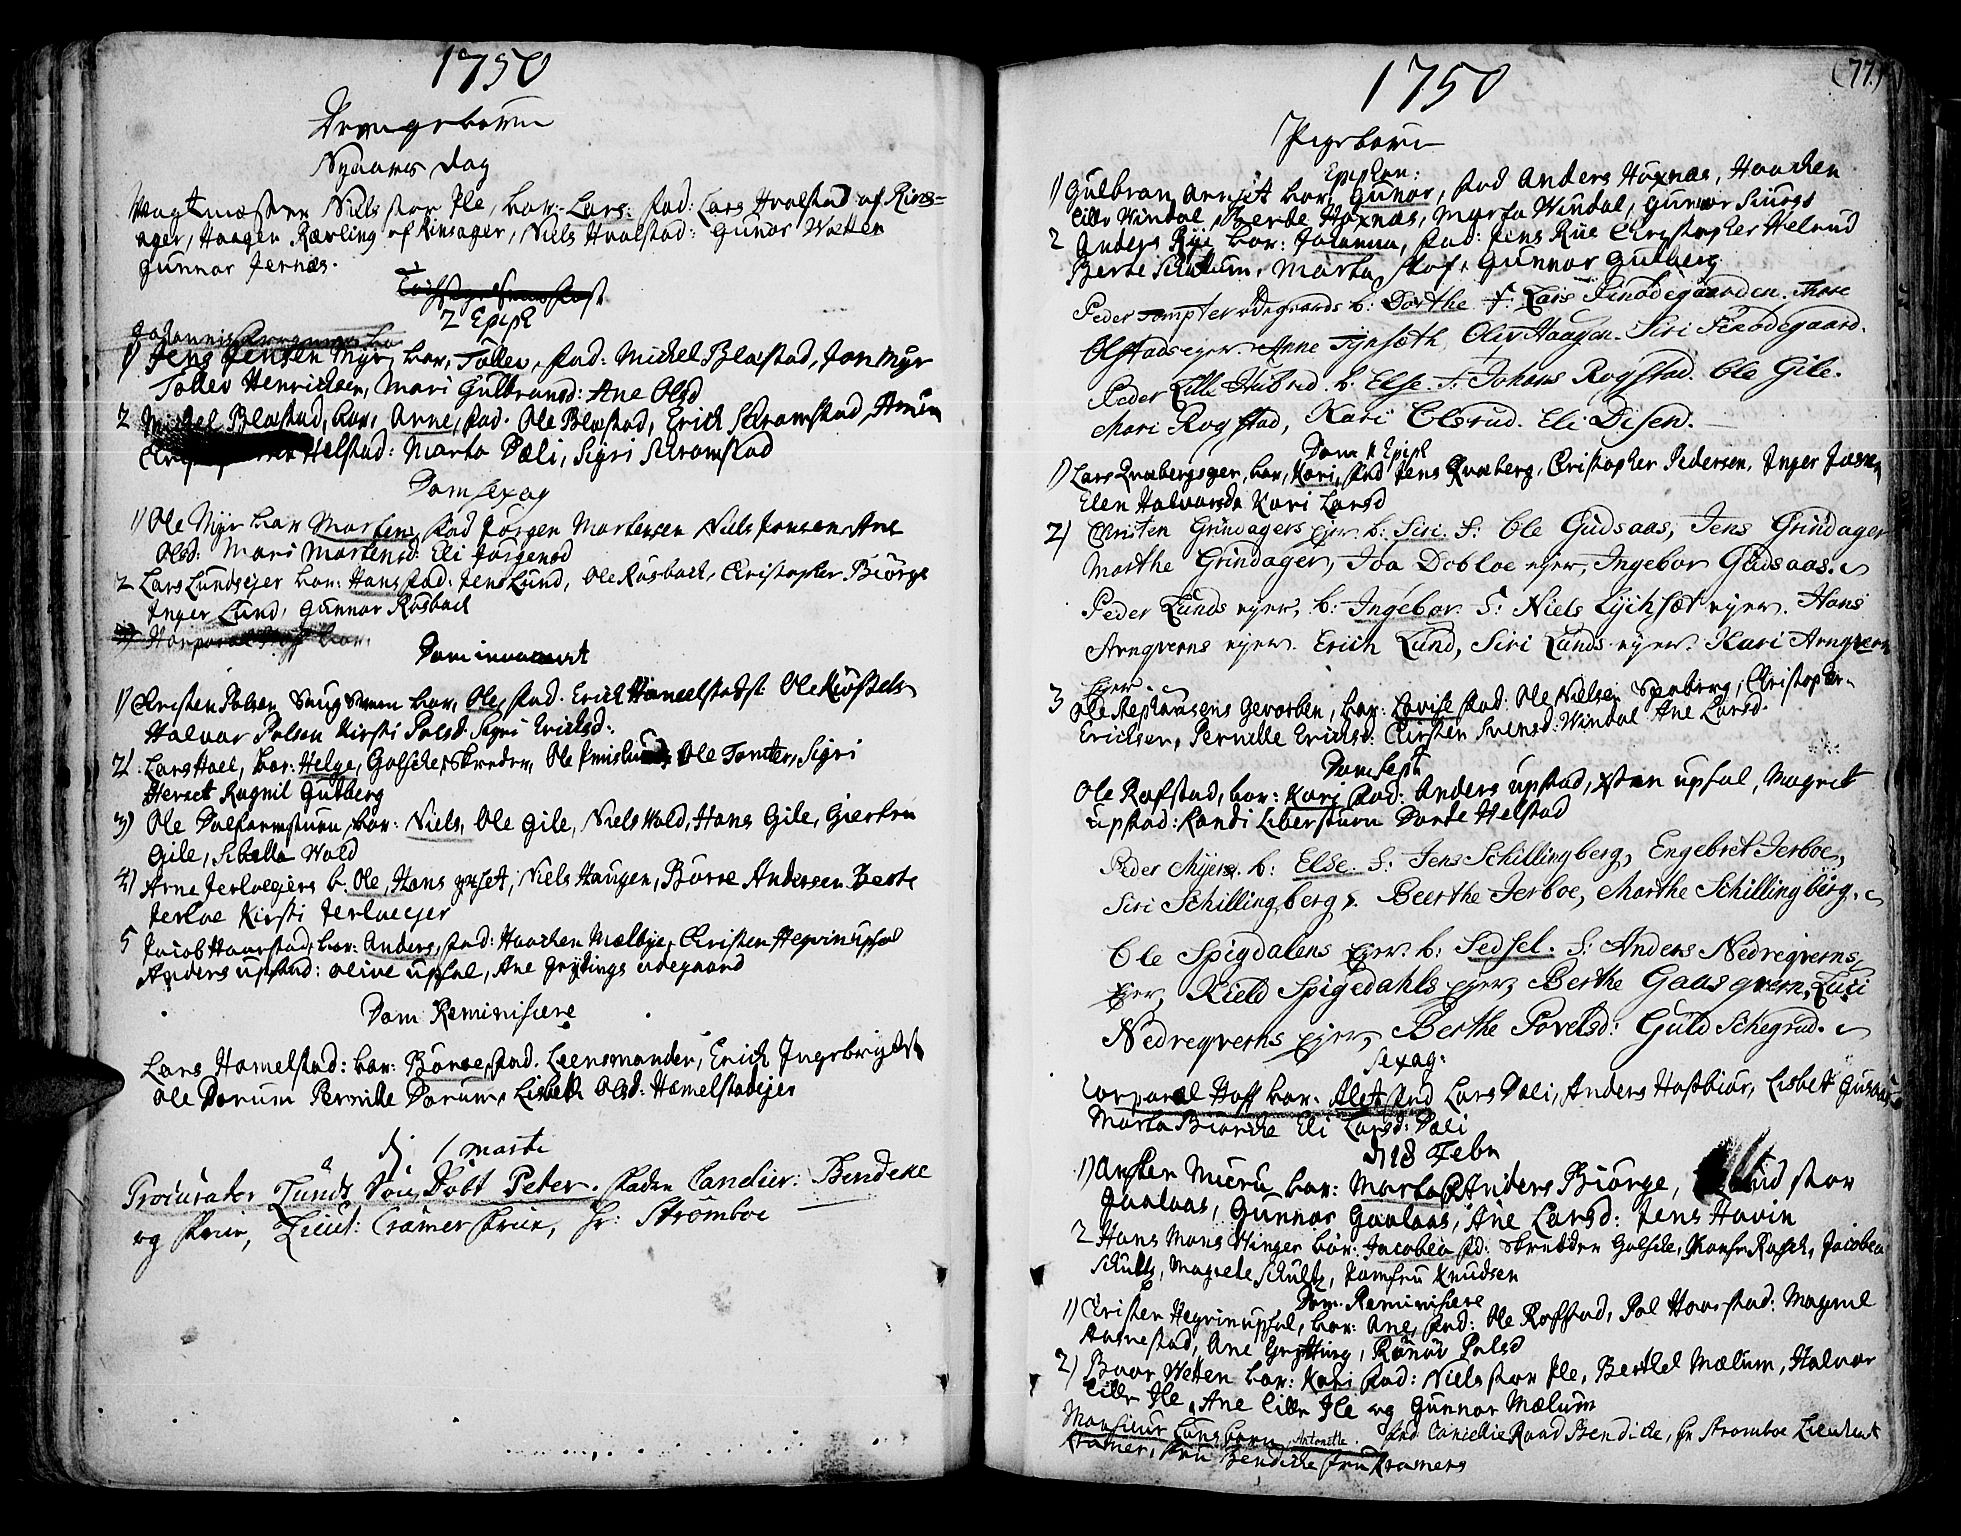 1750
Drengebørn
Nyaars dag
Vagtmæster Niels stor Ile, bar: Lars. fad: Lars Hvalstad af Rins-
ager, Haagen Rævling af Rinsager, Niels Hvalstad: Gunor Wetten
Gunnor Jernæs.
2 Epiph
1) Jens Jensen Myr, bar, Tollev, fad: Michel Blæstad, Jon Myr
Tollev Henrichsen, Mari Gulbransd: Ane Olsd
2 Michel Blæstad, bar, Anne, fad. Ole Blæstad, Erich Schramstad,
Helstad: Marta Dæli, Sigri Schramstad
Dom sexag
1) Ole Myr bar Morten, fad Jörgen Mortensen Niels Jansen Ane
Olsd: Mari Mortensd: Eli Jörgensd
2 Lars Lundsejer bar: Hans fad: Jens Lund, Ole Rusback, Christopher Biörge
Inger Lund, Gunnor Rusback
Dom invocavit
1) Christen Polsen bar, Ole, fad. Erich Ole
Halvor Polsen Kirsti Polsd Sigri Erichsd:
2) Lars Hoel, bar: Helge, Golsche, Skreder, Ole Ole Tomter, Sigri
Herset Ragnil Gutberg
3) Ole bar: Niels, Ole Gile, Niels Wold, Hans Gile, Giertru
Gile, Sibella Wold
4) Arne Jerloeejers b. Ole, Hans Niels Haugen, Börre Andersen Berte
Jerloe Kirsti Jerloeejer
5 Jacob Haarstad, bar: Anders, fad: Haachen Mælbye, Christen Hegvin upsal
Anders upsand: Olive upsal, Ane Gryttings ødegaard
Dom Reminisere
Lars Hamelstad: bar: Börre, fad. Leensmanden, Erich Ingebrigts
Ole Dorum Pernille Dorum, Lisbeth Olsd: Hamelstadejer
d 1 marti
Procurator Lunds Søn Døbt Peter. fadere Cancelier: Bendeke
og frue, Lieut: Cramers frue, hr: Strömboe
(77)
1750
Pigebørn
Epiphan:
1) Gulbran bar, Gunor, fad Anders Hoxnæs, Haachen
Lille Windal, Berte Hoxnæs, Marta Windal, Gunnor
2 Anders Rye bar: Johanna, fad: Jens Rue Christopher Helrud
Berte Marta Gunnor Gutberg
Peder Tompter ødegaards b: Dorthe f: Lars Thore
Olstadsejer. Anne Tynsæth Oliv Haagen. Siri
Peder Lille Hubred. b: Else. f: Johans Rogstad. Ole Gile.
Mari Rogstad, Kari Olsrud. Eli Disen.
Dom 1 Epiph
1) Lars Qvæbergsejer, bar, Kari, fad Jens Qvæberg, Christopher Pedersen, Inger
Elen Halvorsda Kari Larsd
2) Christen Grindagers ejer b: Siri. f: Ole Gudsaas, Jens Grindager
Marthe Grindager, Ida Dobloe ejer, Ingebor Gudsaas.
Peder Lunds ejer, b: Ingebor. f: Niels ejer. Hans
Arnqverns ejer. Erich Lund, Siri Lunds ejer. Kari Arnqvern
ejer.
3 Ole Stephansens Gevorben, bar: Lovise fad: Ole Nielsen Christopher
Erichsen, Pernille Erichsd: Chirsten Svensd: Windal Ane Larsd.
Dom Sept
Ole Rafstad, bar: Kari fad: Anders upstad, Sten upsal, Magret
upstad: Randi Dorte Helstad
Peder Myers. b: Else. f: Jens Schillingberg, Engebret Jerboe,
Siri Schillingberg. Beerthe Jerboe, Marthe Schillingberg.
Ole Spigdalens ejer. b: Sedsel. f: Anders Nedreqverns
ejer, Kield Spigedahls ejer, Berthe Gaasqvern, Lusi
Nedreqverns ejer, Berthe Povelsd: Guld Schegrud.
Sexag:
Corporal Hoff bar. Alet fad Lars Dæli, Anders Hostbiör, Lisbet Gudsaas
Marta Biercke Eli Larsd: Dæli
d 18 Febr
1) Ansten bar: Marta f Anders Biörge, stor
Gaalaas, Gunnor Gaalaas, Ane Larsd: Jens Havin
2 Hans Mons Hinger bar: Jacobea fad: Skredder Golsche, Rasch, Jacobea
Schults, Magrete Schults, Jomfru Knudsen
Dom. Reminisere
1) Cristen Hegvin upsal, bar: Ane, fad: Ole Rafstad, Pol Haarstad: Magnil
Ane Grytting, Rönau Polsd
2) Boor Wetten bar: Kari fad: Niels stor Ile, Berthel Mælum, Halvor
Lille Ile, Ane Lille Ile og Gunnor Mælum
Monsieur Lunds barn, Antonette. fad Cancellie Raad Bendicke, hr Stromboe Lieutent
Kramer, fru Bendicke fru Kramers